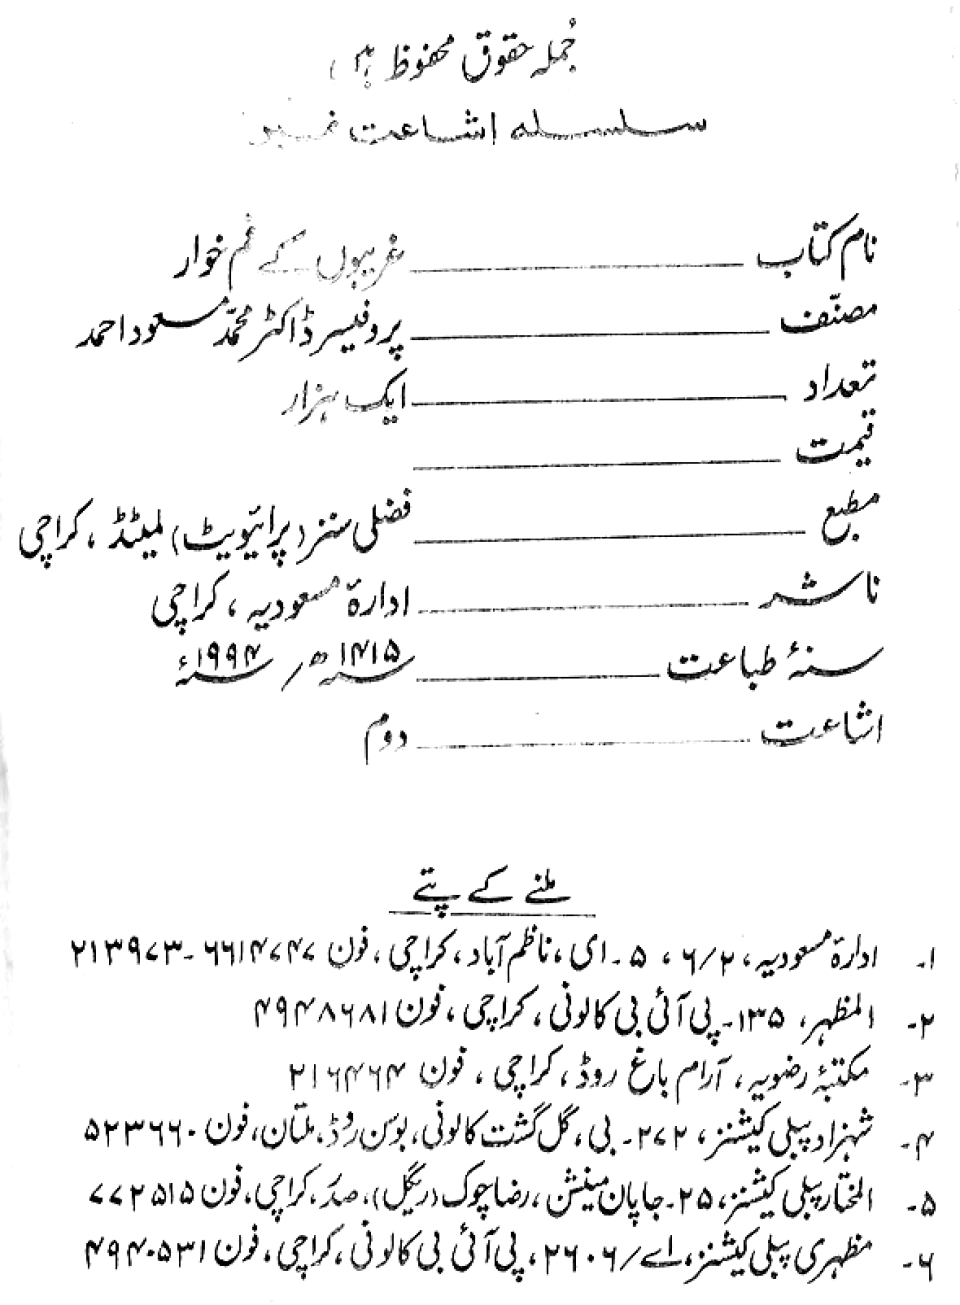 جُملہ حقوق محفوظ ہیں
سلسلہ اشاعت نمبر
نام کتاب ـــــــ غریبوں کے غم خوار
مصنّف ـــــــ پروفیسر ڈاکٹر محمّد مسعود احمد
تعداد ـــــــ ایک ہزار
قیمت ـــــــ
مطبع ـــــــ فضلی سنز (پرائیویٹ) لمیٹڈ، کراچی
ناشر ـــــــ ادارۂ مسعودیہ، کراچی
سنۂ طباعت ـــــــ ۱۴۱۵ھ / ۱۹۹۴ء
اشاعت ـــــــ دوم
ملنے کے پتے
۱۔ ادارۂ مسعودیہ، ۶/۲، ۵۔ ای، ناظم آباد، کراچی، فون ۶۶۱۴۷۴۷-۲۱۳۹۷۳
۲۔ المظہر، ۱۳۵۔ پی آئی بی کالونی، کراچی، فون ۴۹۴۸۶۸۱
۳۔ مکتبۂ رضویہ، آرام باغ روڈ، کراچی، فون ۲۱۶۴۶۴
۴۔ شہزاد پبلی کیشنز، ۲۷۲۔ بی، گل گشت کالونی، بوسن روڈ، ملتان، فون ۵۲۳۶۶۰
۵۔ المختار پبلی کیشنز، ۲۵۔ جاپان مینشن، رضا چوک (ریگل)، صدر، کراچی، فون ۷۷۲۵۱۵
۶۔ مظہری پبلی کیشنز، اے/۲۶۰۶، پی آئی بی کالونی، کراچی، فون ۴۹۴۰۵۳۱